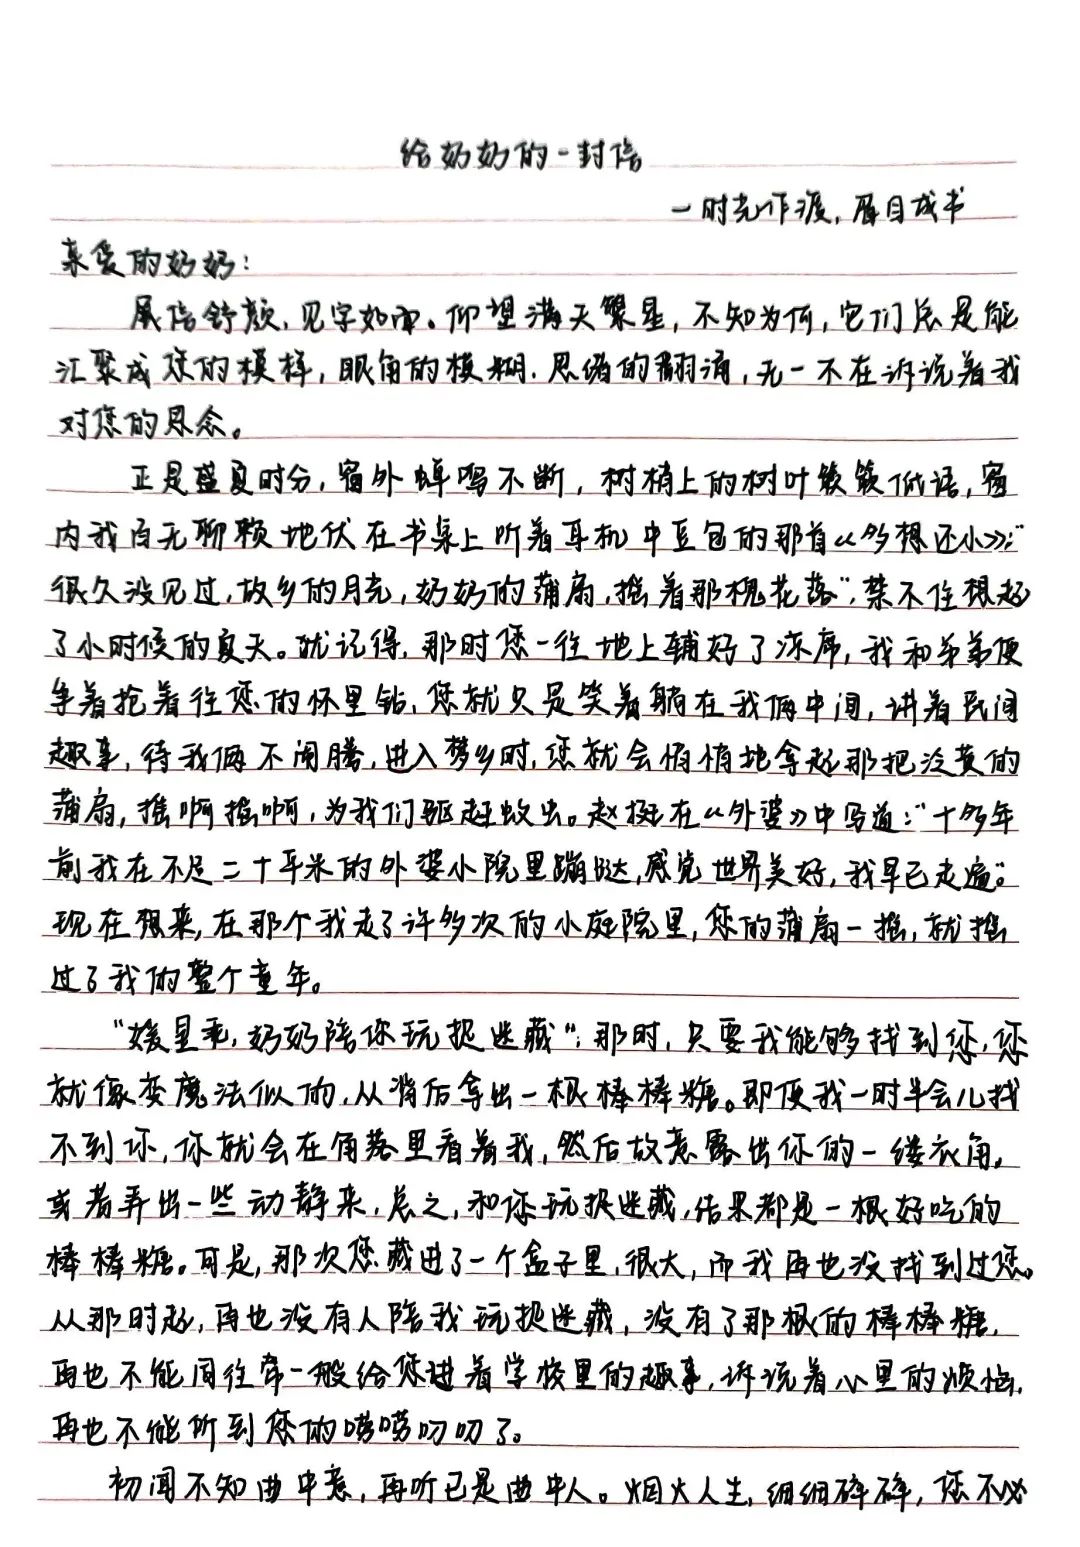 给奶奶的一封信
一时光作渡，眉目成书
亲爱的奶奶：
展信舒颜，见字如面。仰望满天繁星，不知为何，它们总是能
汇聚成您的模样，眼角的模糊，思绪的翻涌，无一不在诉说着我
对您的思念。
正是盛夏时分，窗外蝉鸣不断，树梢上的树叶簌簌低语，窗
内我百无聊赖地伏在书桌上听着耳机中豆包的那首《多想还小》：“
很久没见过，故乡的月亮，奶奶的蒲扇，摇着那槐花落”，禁不住想起
了小时候的夏天。犹记得，那时您一往地上铺好了凉席，我和弟弟便
争着抢着往您的怀里钻，您就只是笑着躺在我俩中间，讲着民间
趣事，待我俩不闹腾，进入梦乡时，您就会悄悄地拿起那把泛黄的
蒲扇，摇啊摇啊，为我们驱赶蚊虫。赵挺在《外婆》中写道：“十多年
前我在不足二十平米的外婆小院里蹦跶，感觉世界美好，我早已走遍。”
现在想来，在那个我走了许多次的小庭院里，您的蒲扇一摇，就摇
过了我的整个童年。
“媛星乖，奶奶陪你玩捉迷藏”；那时，只要我能够找到您，您
就像变魔法似的，从背后拿出一根棒棒糖。即便我一时半会儿找
不到你，你就会在角落里看着我，然后故意露出你的一缕衣角，
或者弄出一些动静来，总之，和你玩捉迷藏，结果都是一根好吃的
棒棒糖。可是，那次您藏进了一个盒子里，很大，而我再也没找到过您。
从那时起，再也没有人陪我玩捉迷藏，没有了那根的棒棒糖，
再也不能同往常一般给您讲着学校里的趣事，诉说着心里的烦恼，
再也不能听到您的唠唠叨叨了。
初闻不知曲中意，再听已是曲中人。烟火人生，细细碎碎，您不必